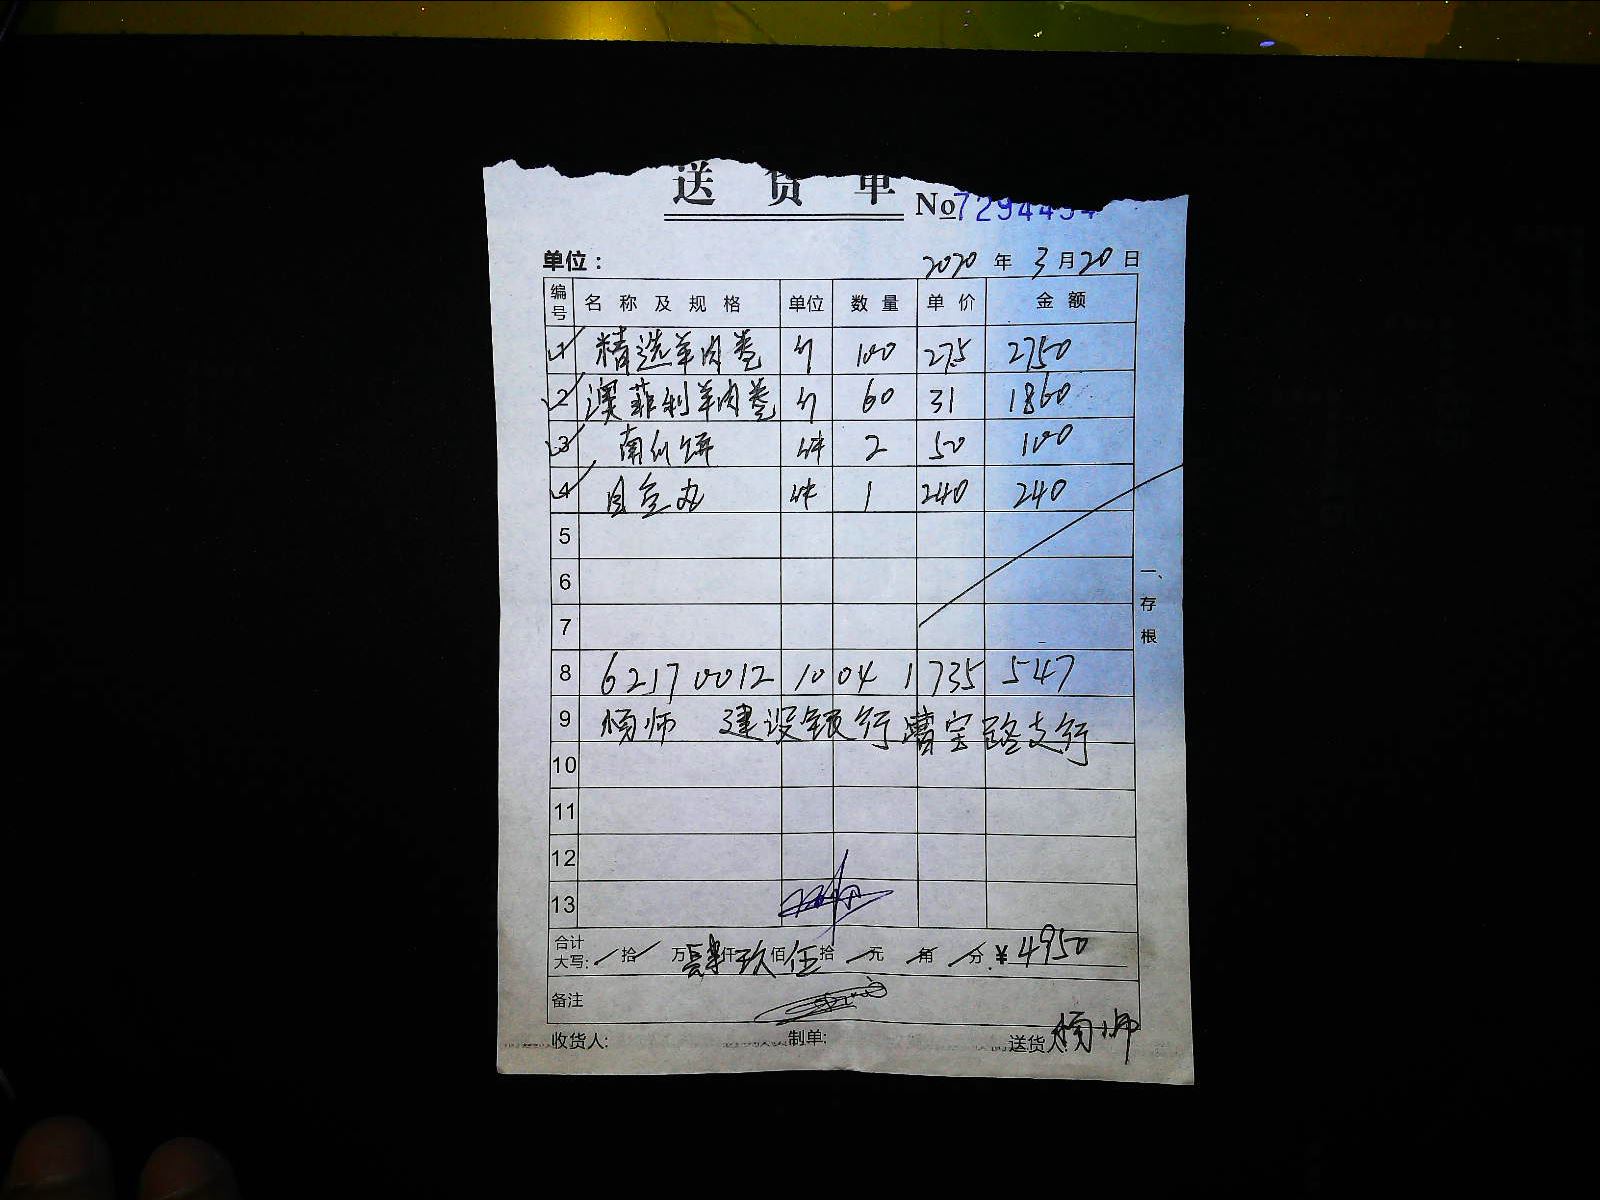 送货单 No7294494
单位： 2020年3月20日
编号 名称及规格 单位 数量 单价 金额
1 精选羊肉卷 斤 100 27.5 2750
2 澳菲利羊肉卷 斤 60 31 1860
3 南瓜饼 件 2 50 100
4 件 1 240 240
5
6
7
8 6217 0012 1004 1735 547
9 建设银行漕宝路支行
10
11
12
13
合计大写: 拾 万肆仟玖佰伍拾 元 角 分 ¥4950
备注
收货人: 制单: 送货人:
一、存根